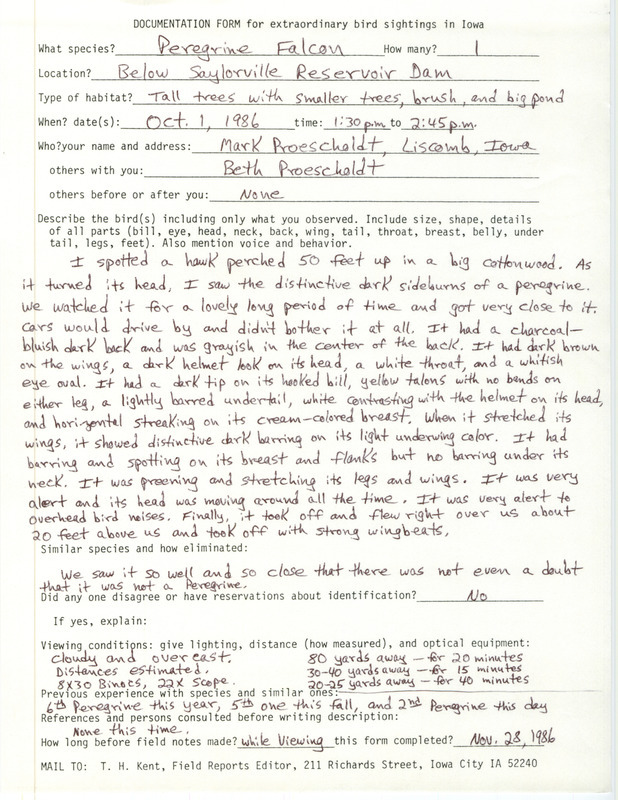 DOCUMENTATION FORM for extraordinary bird sightings in Iowa
What species? Peregrine Falcon How many? 1
Location? Below Saylorville Reservoir Dam
Type of habitat? Tall trees with smaller trees, brush, and big pond
When? date(s): Oct. 1, 1986 time: 1:30 p.m. to 2:45 p.m.
Who?your name and address: Mark Proescholdt, Liscomb, Iowa
others with you: Beth Proescholdt
others before or after you: None
Describe the bird(s) including only what you observed. Include size, shape, details
of all parts (bill, eye, head, neck, back, wing, tail, throat, breast, belly, under
tail, legs, feet). Also mention voice and behavior.
I spotted a hawk perched 50 feet up in a big cottonwood. As
it turned its head, I saw the distinctive dark sideburns of a peregrine.
We watched it for a lovely long period of time and got very close to it.
Cars would drive by and didn't bother it at all. It had a charcoal-
bluish dark back and was grayish in the center of the back. It had dark brown
on the wings, a dark helmet look on its head, a white throat, and a whitish
eye oval. It had a dark tip on its hooked bill, yellow talons with no bands on
either leg, a lightly barred undertail, white contrasting with the helmet on its head,
and horizontal streaking on its cream-colored breast. When it stretched its
wings, it showed distinctive dark barring on its light underwing color. It had
barring and spotting on its breast and flanks but no barring under its
neck. It was preening and stretching its legs and wings. It was very
alert and its head was moving around all the time. It was very alert to
overhead bird noises. Finally, it took off and flew right over us about
20 feet above us and took off with strong wingbeats.
Similar species and how eliminated:
We saw it so well and so close that there was not even a doubt
that it was not a Peregrine.
Did any one disagree or have reservations about identification? No
If yes, explain:
Viewing conditions: give lighting, distance (how measured), and optical equipment:
Cloudy and overcast. 80 yards away - for 20 minutes
Distances estimated. 30-40 yards away - for 15 minutes
8x30 Binocs, 22x Scope. 20-25 yards away - for 40 minutes
Previous experience with species and similar ones:
6th Peregrine this year, 5th one this fall, and 2nd Peregrine this day
References and persons consulted before writing description:
None this time.
How long before field notes made? while viewing this form completed? Nov. 28, 1986
MAIL TO: T. H. Kent, Field Reports Editor, 211 Richards Street, Iowa City IA 52240